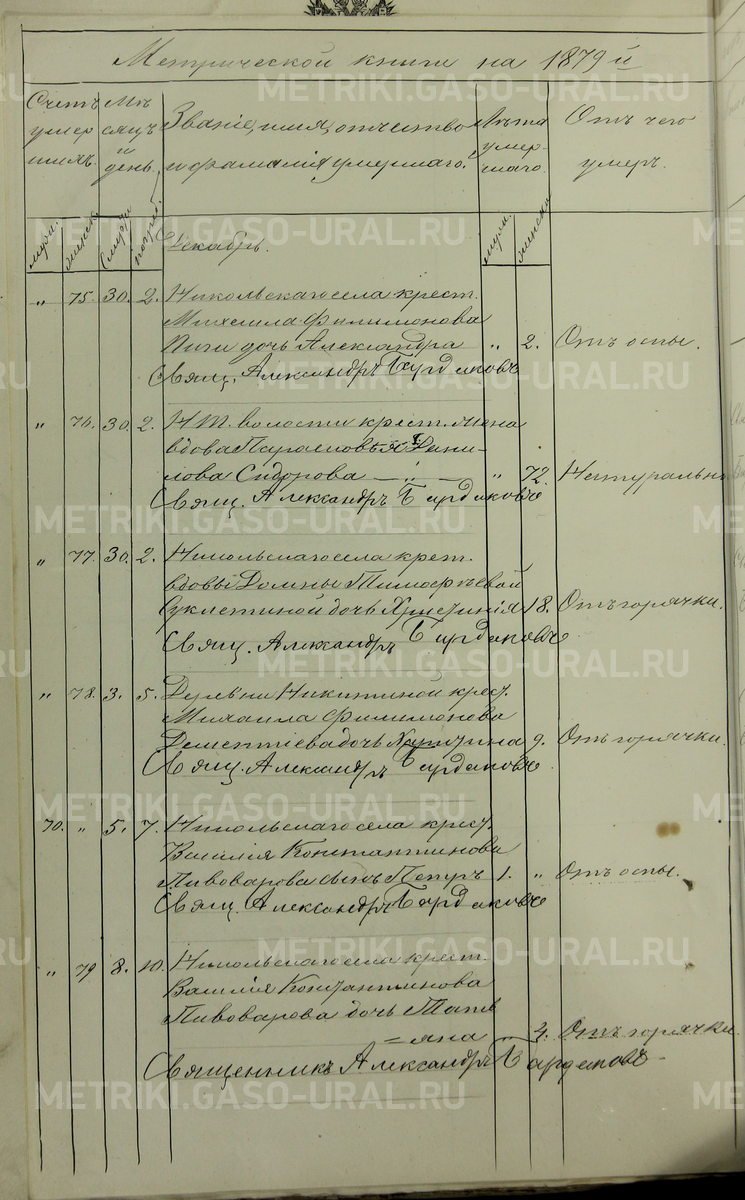 Метрической книги на 1879 й
Счетъ умершихъ.
Мѣсяцъ и день.
Званіе, имя, отчество и фамилія умершаго.
Лѣта умершаго.
Отъ чего умеръ.
муж.
женск.
Смерти
погреб.
Декабрь.
муж.
женск.
" 75. 30. 2. Никольскаго села крест.
Михаила Филимонова
дочь Александра " 2. Отъ оспы.
Свящ. Александръ Бардаковъ
" 76. 30. 2. волости крест. жена
вдова Парасковья Дани-
лова Сидорова — " — " 72. Натурально
Свящ. Александръ Бардаковъ
" 77. 30. 2. Никольскаго села крест.
вдовы Домны Тимофѣевой
дочь Христинія 18. Отъ горячки.
Свящ. Александръ Бардаковъ
" 78. 3. 5. Деревни Никитиной крест.
Михаила Филимонова
Дементіева дочь 9. Отъ горячки.
Свящ. Александръ Бардаковъ
70. " 5. 7. Никольскаго села крест.
Василія Константинова
Пивоварова сынъ Петръ 1. " Отъ оспы.
Свящ. Александръ Бардаковъ
" 79 8. 10. Никольскаго села крест.
Василія Константинова
Пивоварова дочь Татья
=яна 4. Отъ горячки.
Священникъ Александръ Бардаковъ
METRIKI.GASO-URAL.RU